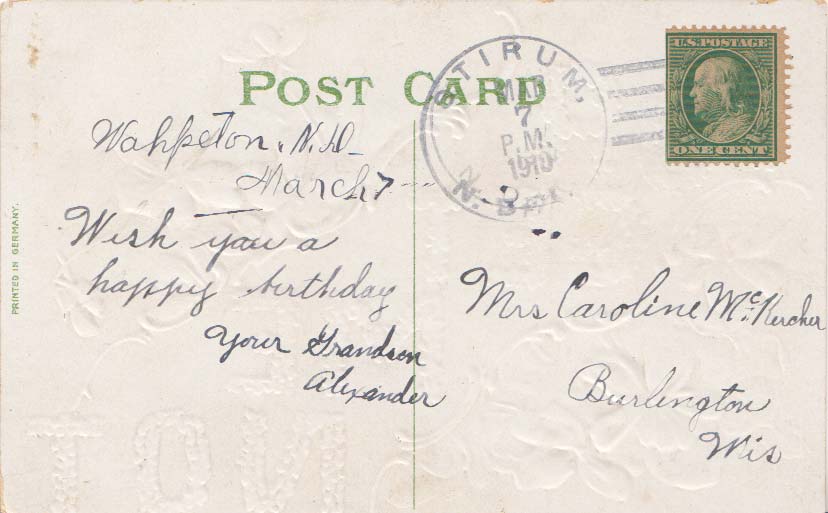 POST CARD
STIRUM,
MR
7
P.M.
1910
N. DAK.
U.S. POSTAGE
ONE CENT
PRINTED IN GERMANY.
Wahpeton, N.D-
March 7
Wish you a
happy birthday
Your Grandson
Alexander
Mrs Caroline McKercher
Burlington
Wis